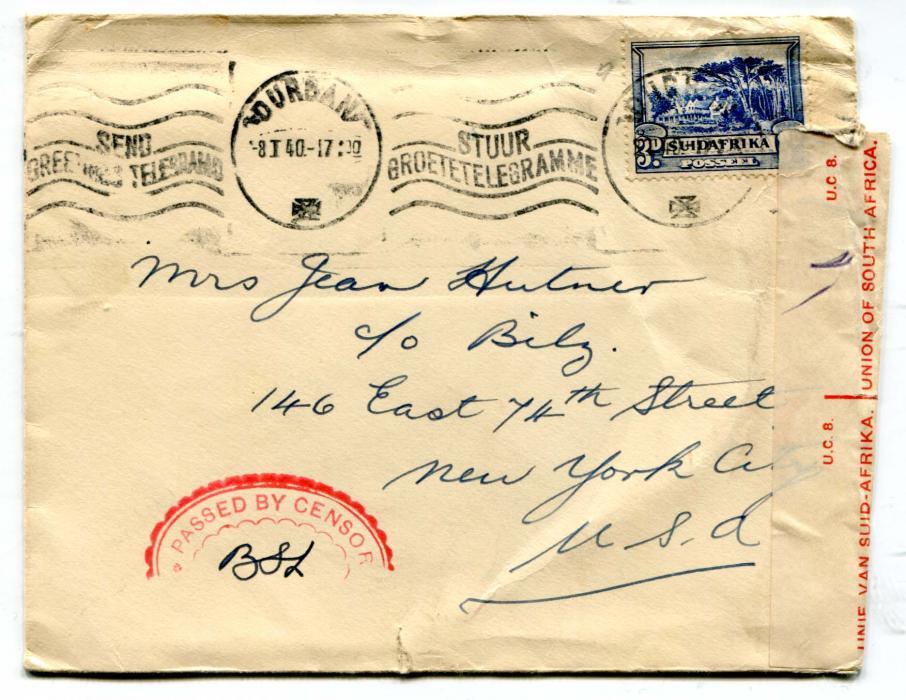 DURBAN
SEND
GREETINGS TELEGRAMS
8 I 40.-17:00
STUUR
GROETETELEGRAMME
3D. SUIDAFRIKA
POSSEEL
Mrs Jean Hutner
c/o Bilz.
146 East 74th Street
New York City
U.S.A
PASSED BY CENSOR
BSL
U.C 8.
UNION OF SOUTH AFRICA.
U.C. 8.
UNIE VAN SUID-AFRIKA.